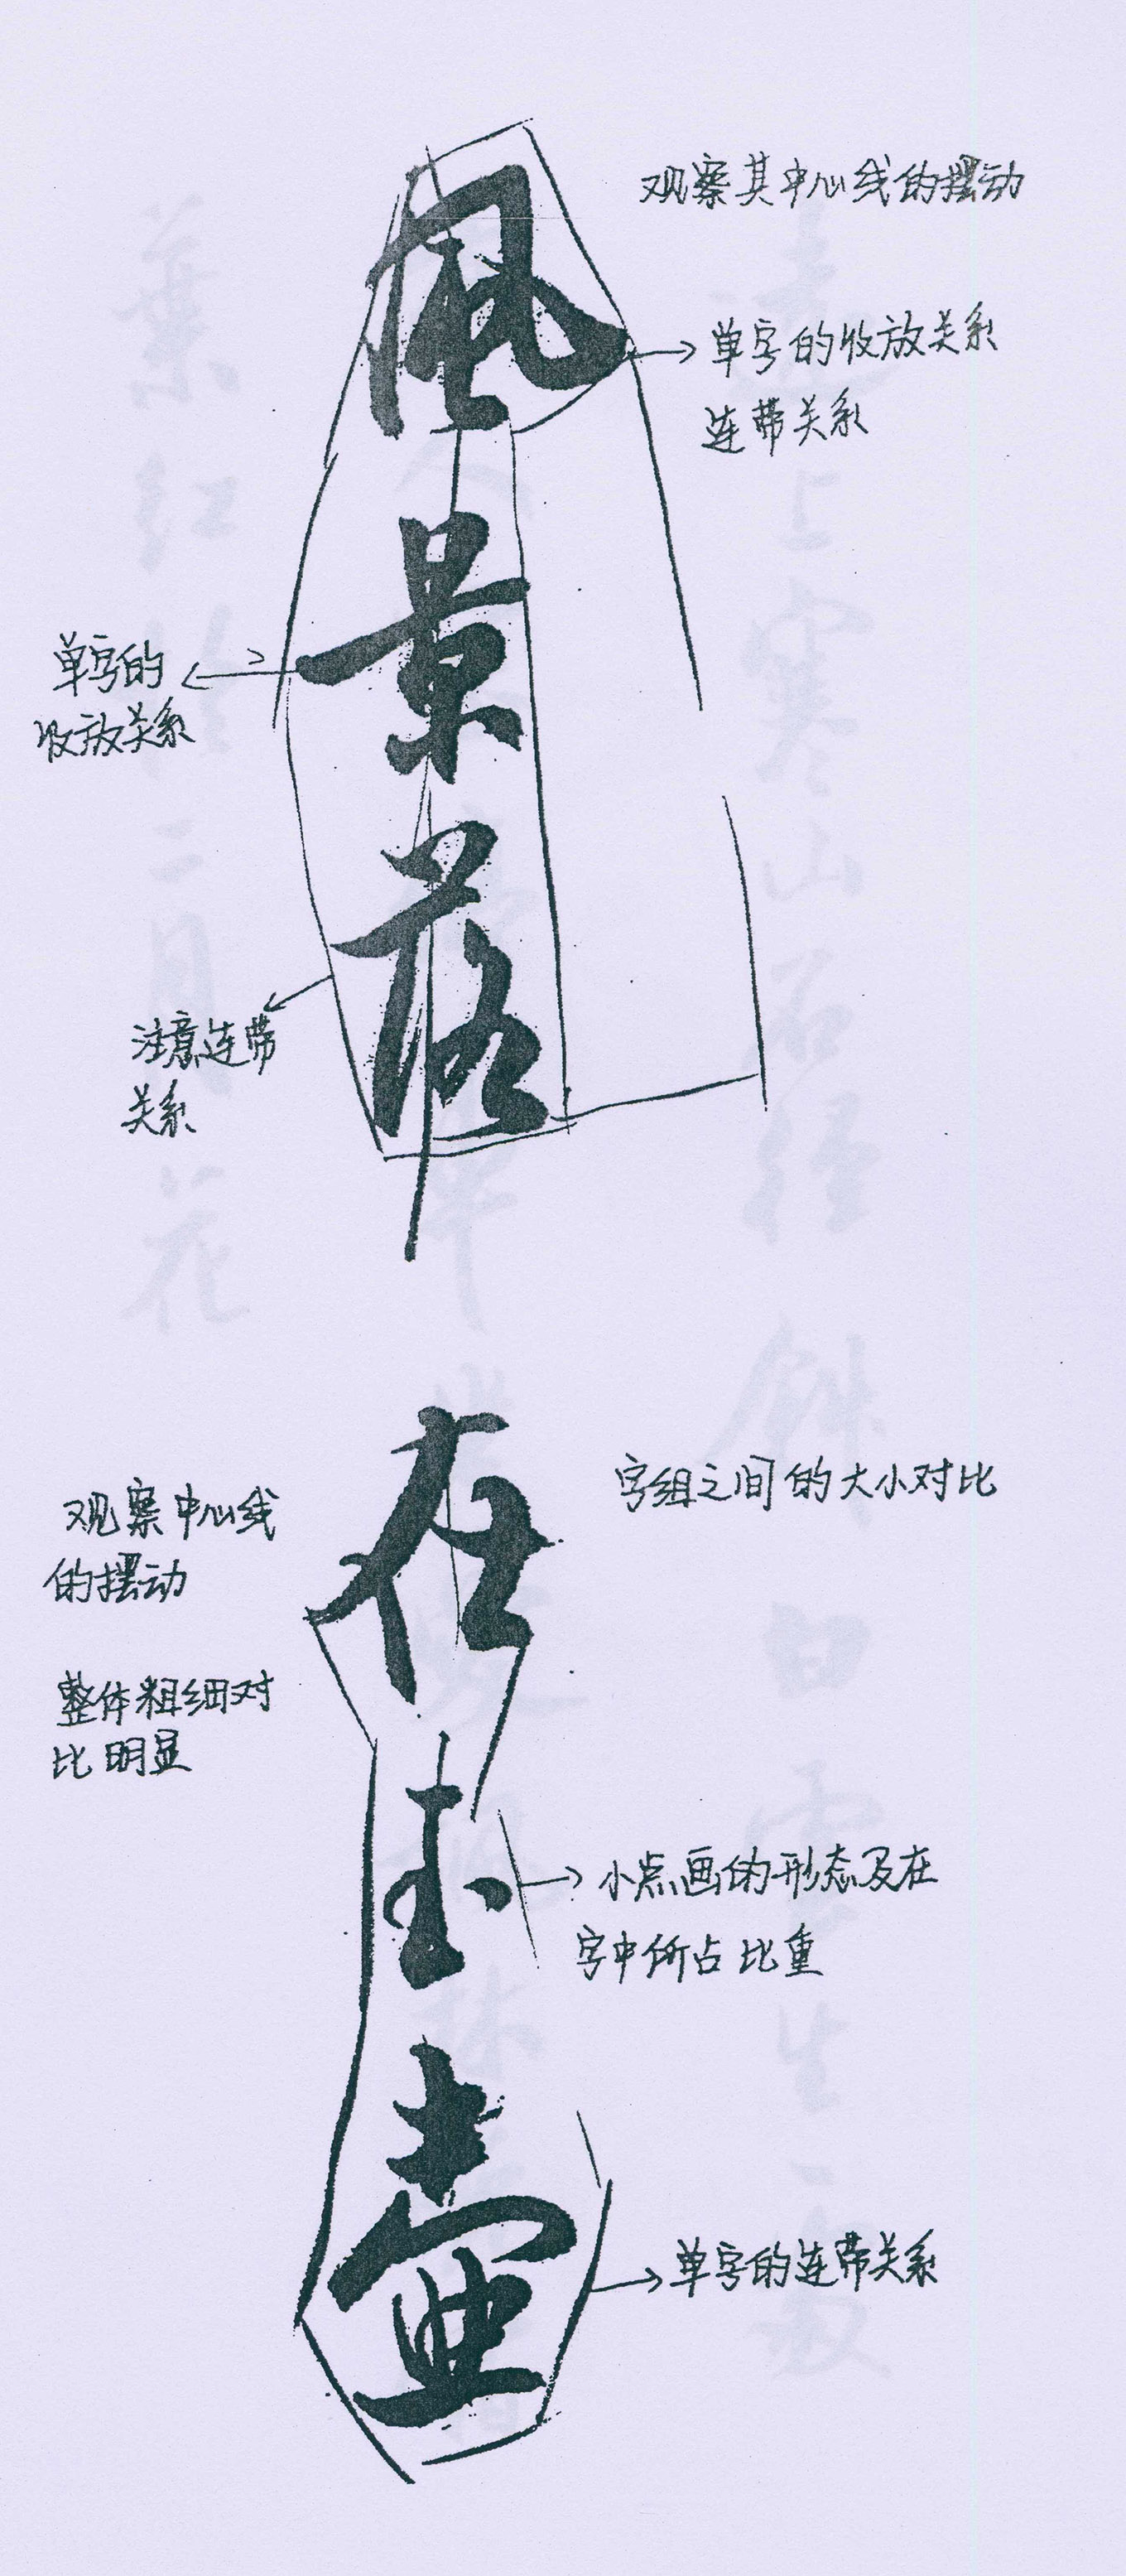 風
景
落
在
玉
壺
观察其中心线的摆动
单字的收放关系
连带关系
单字的
收放关系
注意连带
关系
观察中心线
的摆动
字组之间的大小对比
整体粗细对
比明显
小点画的形态及在
字中所占比重
单字的连带关系